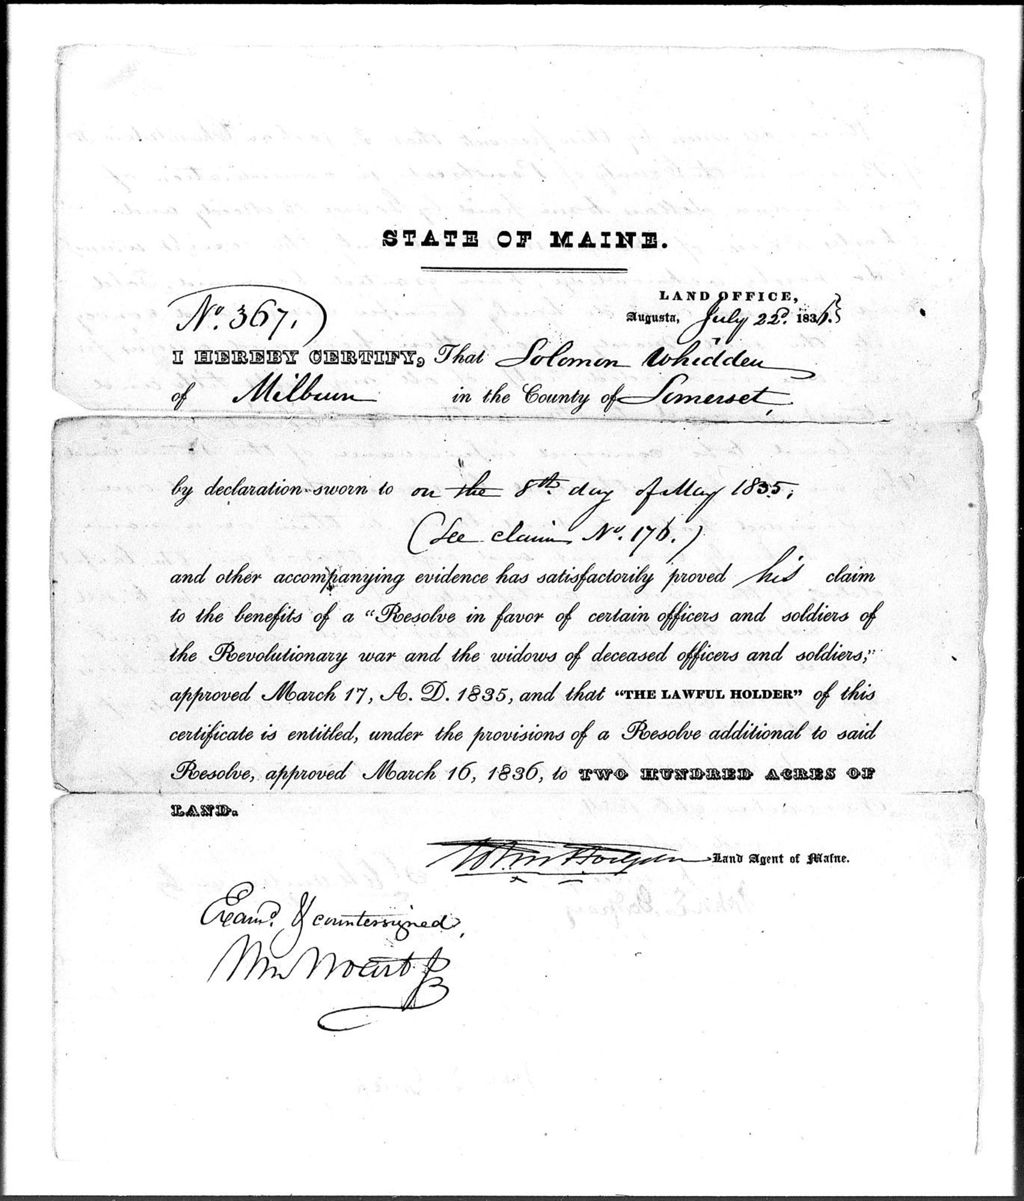 STATE OF MAINE.
LAND OFFICE,
No. 367.
Augusta, July 22d. 1836.
I HEREBY CERTIFY, That Solomon Whidden
of Milburn in the County of Somerset,
by declaration sworn to on the 8th. day of May 1835,
(See claim No. 176.)
and other accompanying evidence has satisfactorily proved his claim
to the benefits of a "Resolve in favor of certain officers and soldiers of
the Revolutionary war and the widows of deceased officers and soldiers,"
approved March 17, A. D. 1835, and that "THE LAWFUL HOLDER" of this
certificate is entitled, under the provisions of a Resolve additional to said
Resolve, approved March 16, 1836, to TWO HUNDRED ACRES OF
LAND.
John Hodgdon Land Agent of Maine.
Examd. & countersigned,
Wm